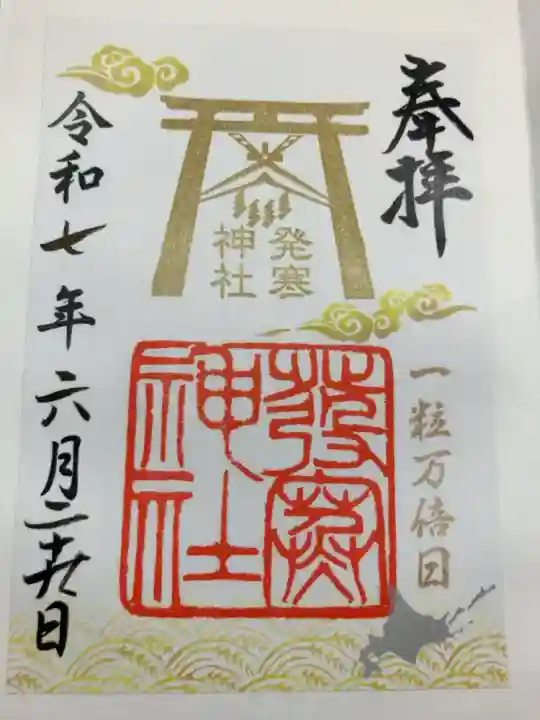 奉拝
発寒
神社
一粒万倍日
發寒
神社
令和七年六月二十九日